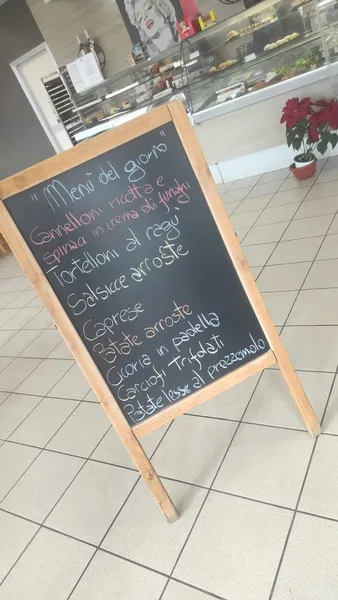 "Menù del giorno"
Cannelloni ricotta e
spinaci in crema di funghi
Tortelloni al ragù
Salsicce arroste
Caprese
Patate arroste
Cicoria in padella
Carciofi Trifolati
Patate lesse al prezzemolo